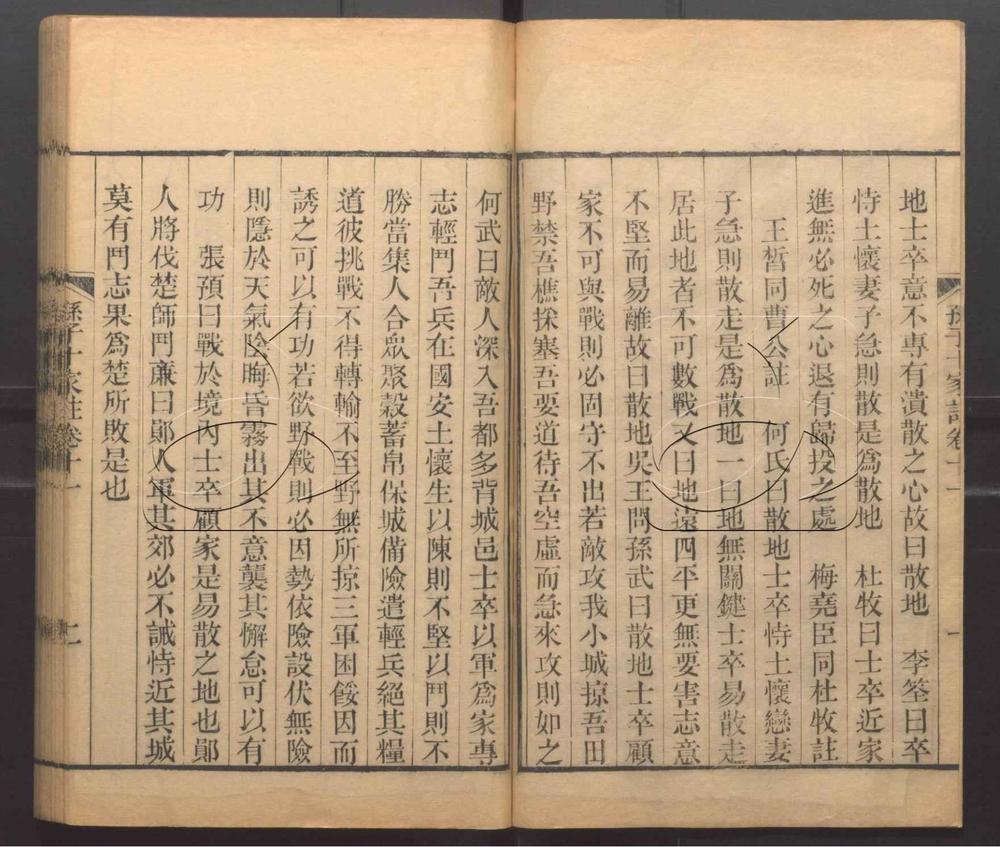 地士卒意不專有潰散之心故曰散地　李筌曰卒
恃土懷妻子急則散是爲散地　杜牧曰士卒近家
進無必死之心退有歸投之處　梅堯臣同杜牧註
王晳同曹公註　何氏曰散地士卒恃土懷戀妻
子急則散走是爲散地一曰地無關鍵士卒易散走
居此地者不可數戰又曰地遠四平更無要害志意
不堅而易離故曰散地吳王問孫武曰散地士卒顧
家不可與戰則必固守不出若敵攻我小城掠吾田
野禁吾樵採塞吾要道待吾空虛而急來攻則如之
何武曰敵人深入吾都多背城邑士卒以軍爲家專
志輕鬥吾兵在國安土懷生以陳則不堅以鬥則不
勝當集人合眾聚穀蓄帛保城備險遣輕兵絕其糧
道彼挑戰不得轉輸不至野無所掠三軍困餒因而
誘之可以有功若欲野戰則必因勢依險設伏無險
則隱於天氣陰晦昏霧出其不意襲其懈怠可以有
功　張預曰戰於境內士卒顧家是易散之地也鄖
人將伐楚師鬥廉曰鄖人軍其郊必不誡恃近其城
莫有鬥志果爲楚所敗是也
孫子十家註卷十一